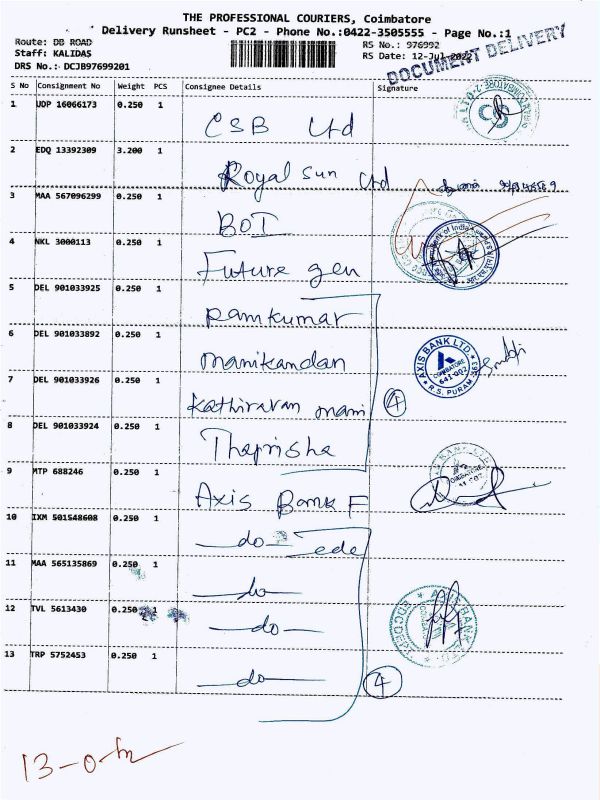 THE PROFESSIONAL COURIERS, Coimbatore
Delivery Runsheet - PC2 - Phone No.:0422-3505555 - Page No.:1
Route: DB ROAD RS No.: 976992
Staff: KALIDAS RS Date: 12-Jul-2022
DRS No.: DCJB97699201 DOCUMENT DELIVERY
S No Consignment No Weight PCS Consignee Details Signature
1 UDP 16066173 0.250 1 CSB Ltd
2 EDQ 13392309 3.200 1 Royal Sun Ltd
3 MAA 567096299 0.250 1 BOI
4 NKL 3000113 0.250 1 Future gen
5 DEL 901033925 0.250 1 Ramkumar
6 DEL 901033892 0.250 1 Manikandan
AXIS BANK LTD.
COIMBATORE
641-002
R.S. PURAM
7 DEL 901033926 0.250 1 Kathiravan mani 4
8 DEL 901033924 0.250 1 Thaprisha
9 MTP 688246 0.250 1 Axis Bank F
10 IXM 501548608 0.250 1 do
11 MAA 565135869 0.250 1 do
12 TVL 5613430 0.250 1 do
13 TRP 5752453 0.250 1 do 4